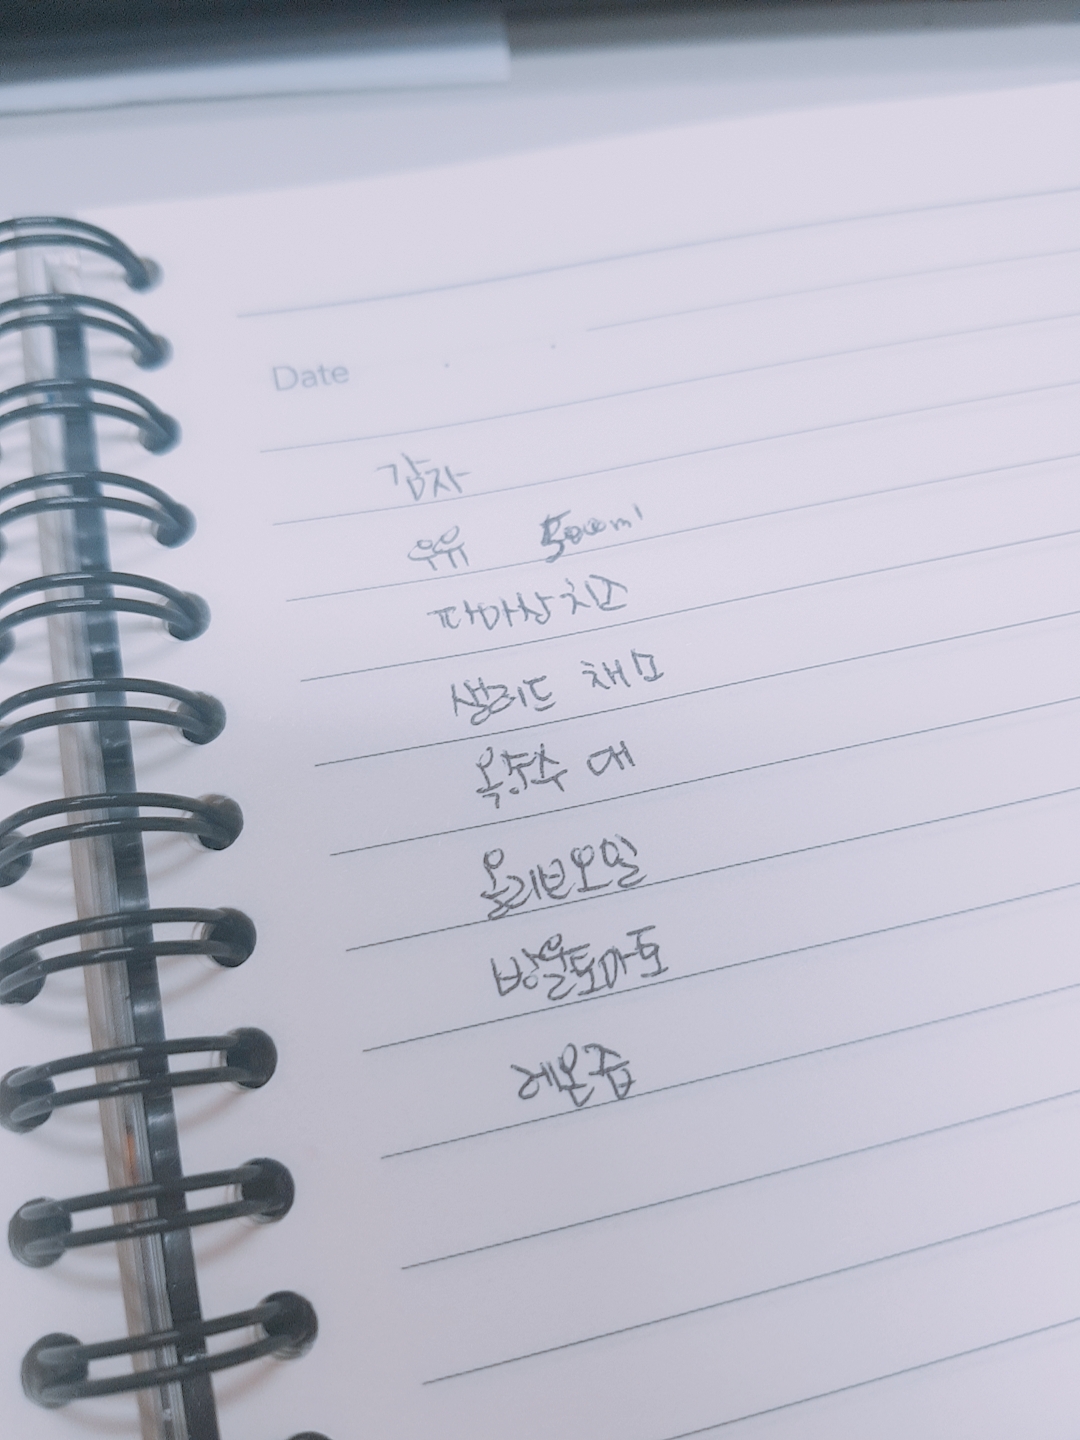 Date
감자
우유 500ml
파마산 치즈
샐러드 채소
옥수수 대
올리브오일
방울토마토
레몬즙